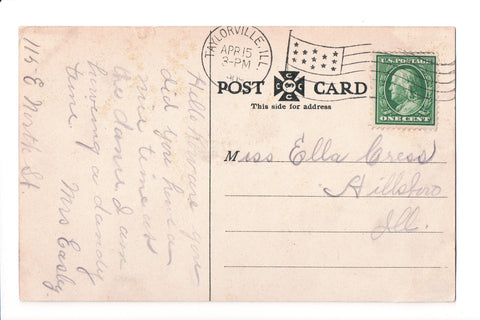 TAYLORVILLE, ILL.
APR 15
3-PM
U.S. POSTAGE
ONE CENT
POST CARD
This side for address
Miss Ella Cress
Hillsboro
Ill.
Hello How are you
did you have a
nice time at
the dance, I am
having a dandy
time.
Mrs Easby
115 E North St.